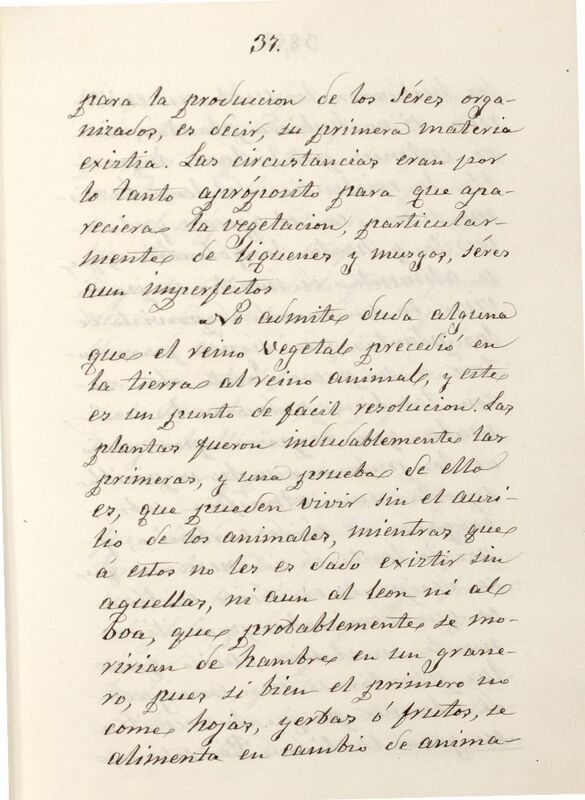 37.
para la produccion de los séres orga-
nizados, es decir, su primera materia
existia. Las circustancias eran por
lo tanto apróposito para que apa-
reciera la vegetacion, particular-
mente de líquenes y musgos, séres
aun imperfectos
No admite duda alguna
que el reino vegetal precedió en
la tierra al reino animal, y este
es un punto de fácil resolucion. Las
plantas fueron indudablemente las
primeras, y una prueba de ello
es, que pueden vivir sin el auxi-
lio de los animales, mientras que
á estos no les es dado existir sin
aquellas, ni aun al leon ni al
boa, que probablemente se mo-
ririan de hambre en un grane-
ro, pues si bien el primero no
come hojas, yerbas ó frutos, se
alimenta en cambio de anima-